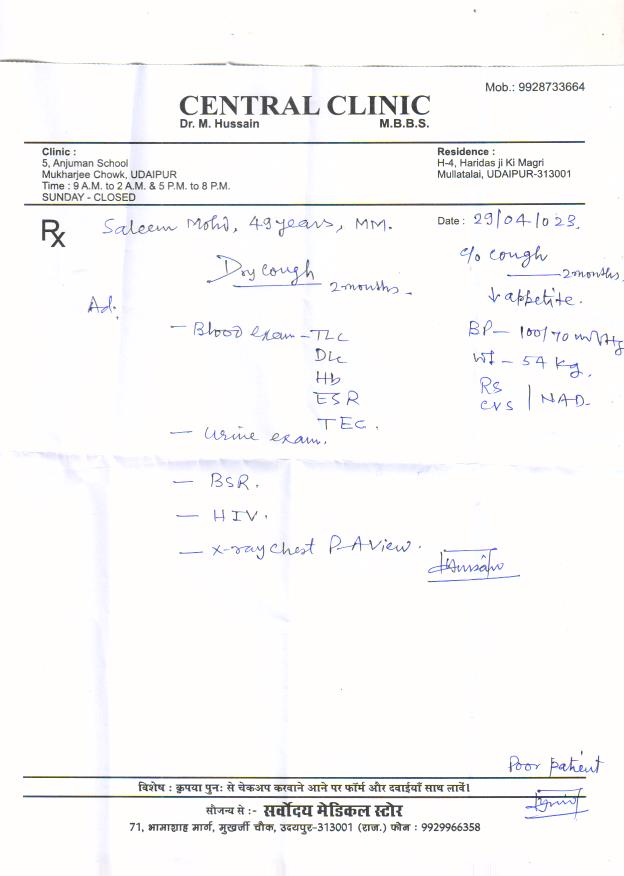 Mob.: 9928733664
CENTRAL CLINIC
Dr. M. Hussain M.B.B.S.
Clinic :
5, Anjuman School
Mukharjee Chowk, UDAIPUR
Time : 9 A.M. to 2 A.M. & 5 P.M. to 8 P.M.
SUNDAY - CLOSED
Residence :
H-4, Haridas ji Ki Magri
Mullatalai, UDAIPUR-313001
Rx
Saleem Mohd, 49 years, MM.
Date : 29/04/023.
Dry cough
2 months.
c/o cough
2 months.
↓ appetite.
BP - 100/70 mmHg
Wt - 54 kg.
RS
CVS | NAD.
Ad.
- Blood exam - TLC
DLC
Hb
ESR
TEC.
- Urine exam.
- BSR.
- HIV.
- X-ray chest P-A View.
Poor patient
विशेष : कृपया पुनः से चेकअप करवाने आने पर फॉर्म और दवाईयाँ साथ लावें।
सौजन्य से :- सर्वोदय मेडिकल स्टोर
71, भामाशाह मार्ग, मुखर्जी चौक, उदयपुर-313001 (राज.) फोन : 9929966358